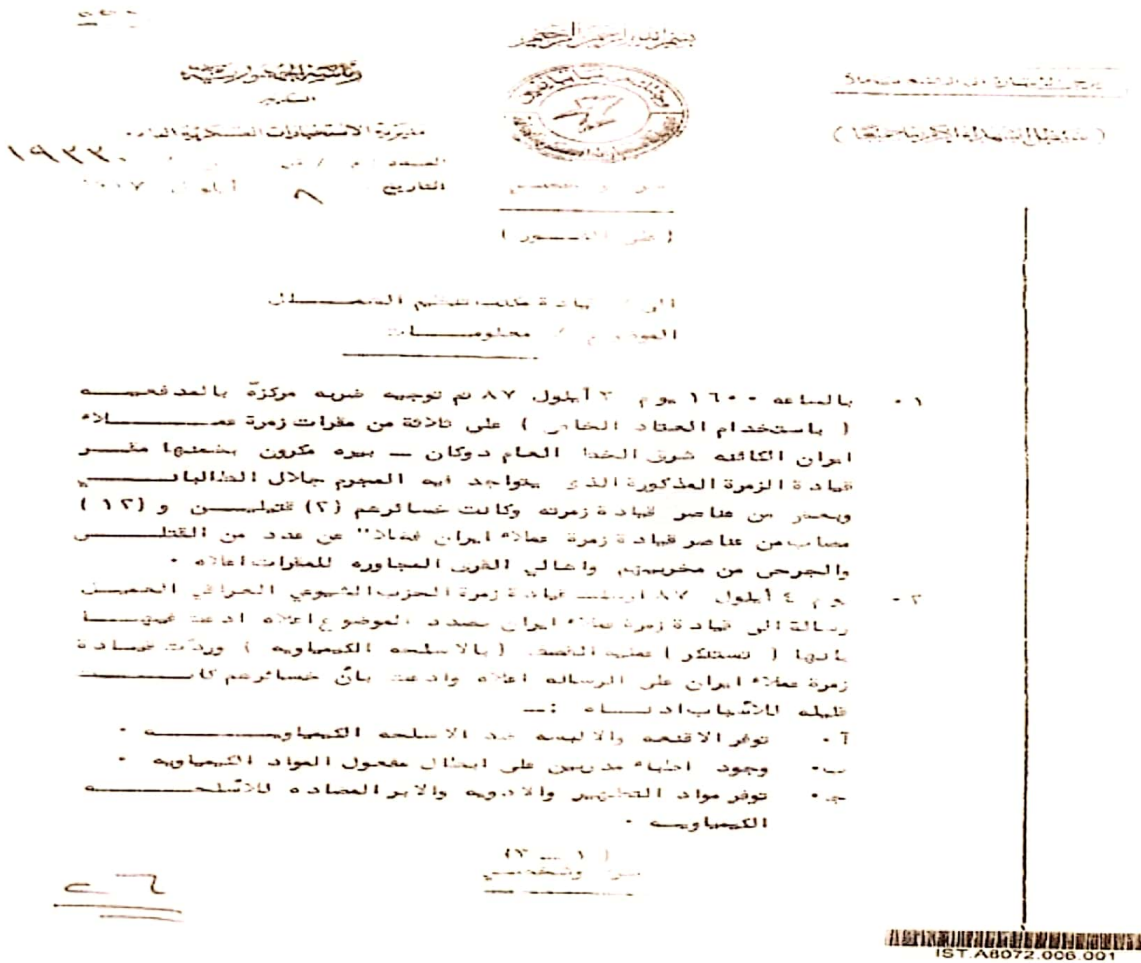 بسم الله الرحمن الرحيم
رئاسة الجمهورية
السكرتير
مديرية الاستخبارات العسكرية العامة
العدد / م / ١٩٣٣٠
التاريخ ٨ أيلول
( على الفور )
الى / قيادة مكتب تنظيم الشمال
الموضوع / معلومات
١٠ بالساعه ١٦٠٠ يوم ٣ أيلول ٨٧ تم توجيه ضربه مركزة بالمدفعيه
( باستخدام العتاد الخاص ) على ثلاثة من مقرات زمرة عملاء
ايران الكائنه شرق الخط العام دوكان – بيره مكرون بضمنها مقر
قيادة الزمرة المذكورة الذي يتواجد فيه المجرم جلال الطالباني
وبعض من عناصر قيادة زمرته وكانت خسائرهم (٢) قتيلين و (١٢)
مصاب من عناصر قيادة زمرة عملاء ايران فضلا" عن عدد من القتلى
والجرحى من مخربيهم واهالي القرى المجاوره للمقرات اعلاه ٠
٢٠ يوم ٤ أيلول ٨٧ ارسلت قيادة زمرة الحزب الشيوعي العراقي العميل
رسالة الى قيادة زمرة عملاء ايران بصدد الموضوع اعلاه ادعت فيها
بانها ( تستنكر ) عملية القصف (بالاسلحه الكيمياويه ) وردّت قيادة
زمرة عملاء ايران على الرساله اعلاه وادعت بانّ خسائرهم كانت
قليله للأسباب ادناه :–
آ٠ توفر الاقنعه والالبسه ضد الاسلحه الكيمياويه ٠
ب٠ وجود اطباء مدربين على ابطال مفعول المواد الكيمياويه ٠
جـ٠ توفر مواد التطهير والادويه والابر المضاده للأسلحه
الكيمياويه ٠
( ١ – ٣)
سري وشخصي
IST.A8072.006.001